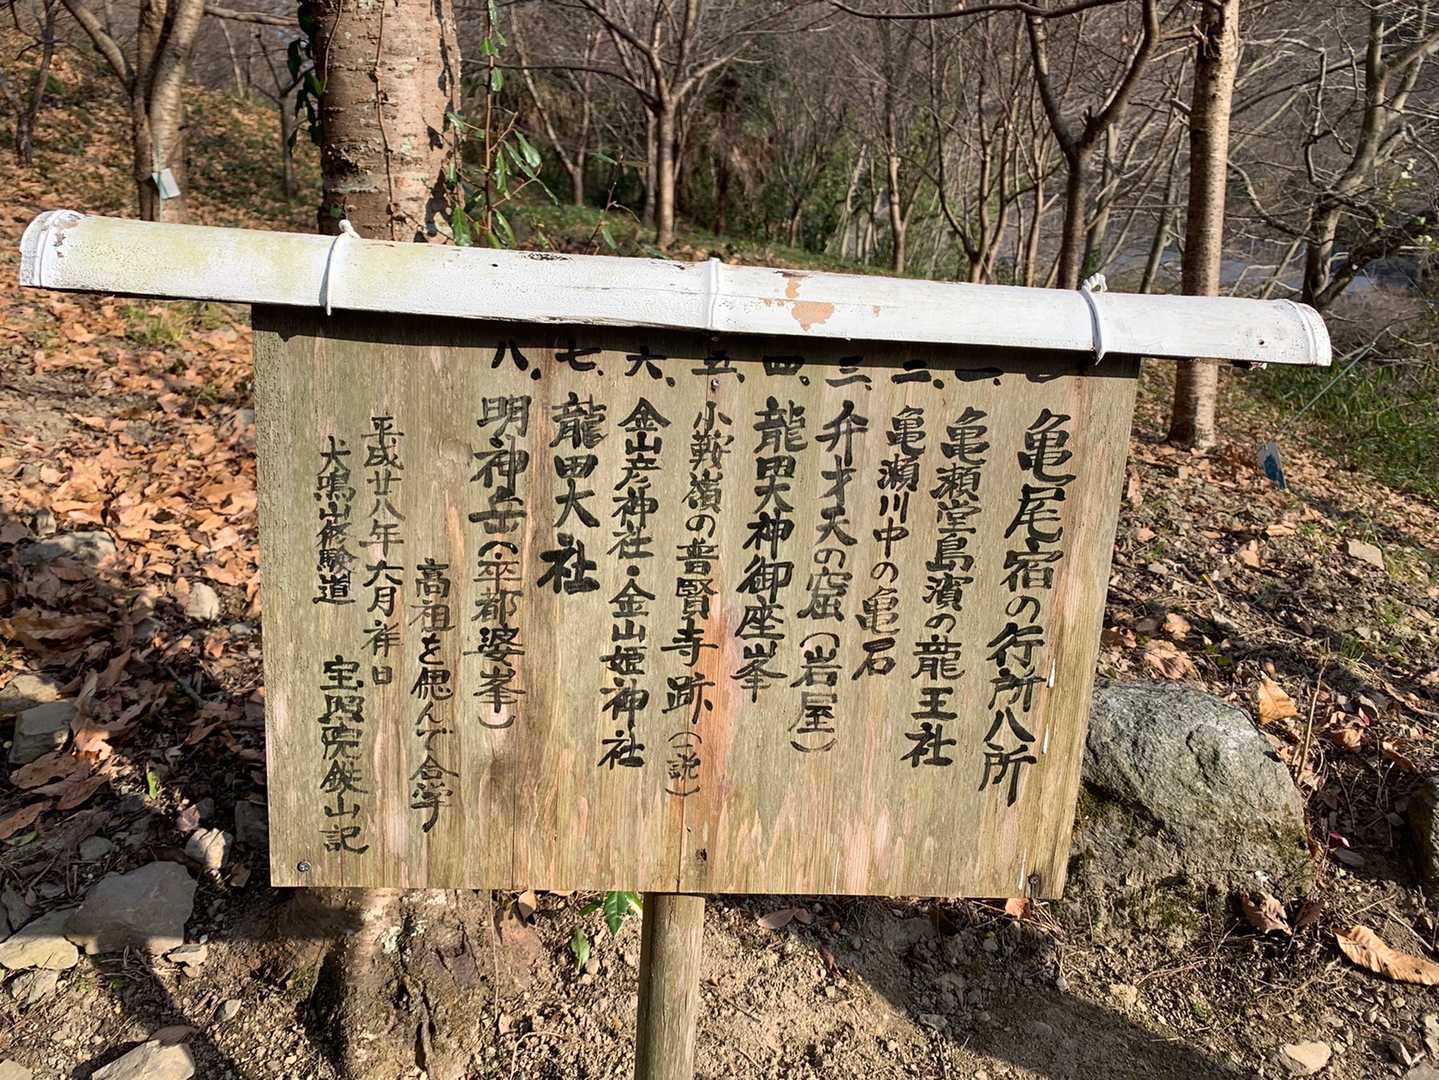 亀尾宿の行所八所
一、亀瀬堂島濱の龍王社
二、亀瀬川中の亀石
三、弁才天の窟（岩屋）
四、龍田大神御座峯
五、小鞍嶺の普賢寺跡（一説）
六、金山彦神社・金山姫神社
七、龍田大社
八、明神岳（卒都婆峯）
高祖を偲んで合掌
平成廿八年六月祥日
犬鳴山修験道　宝照院鉄山記